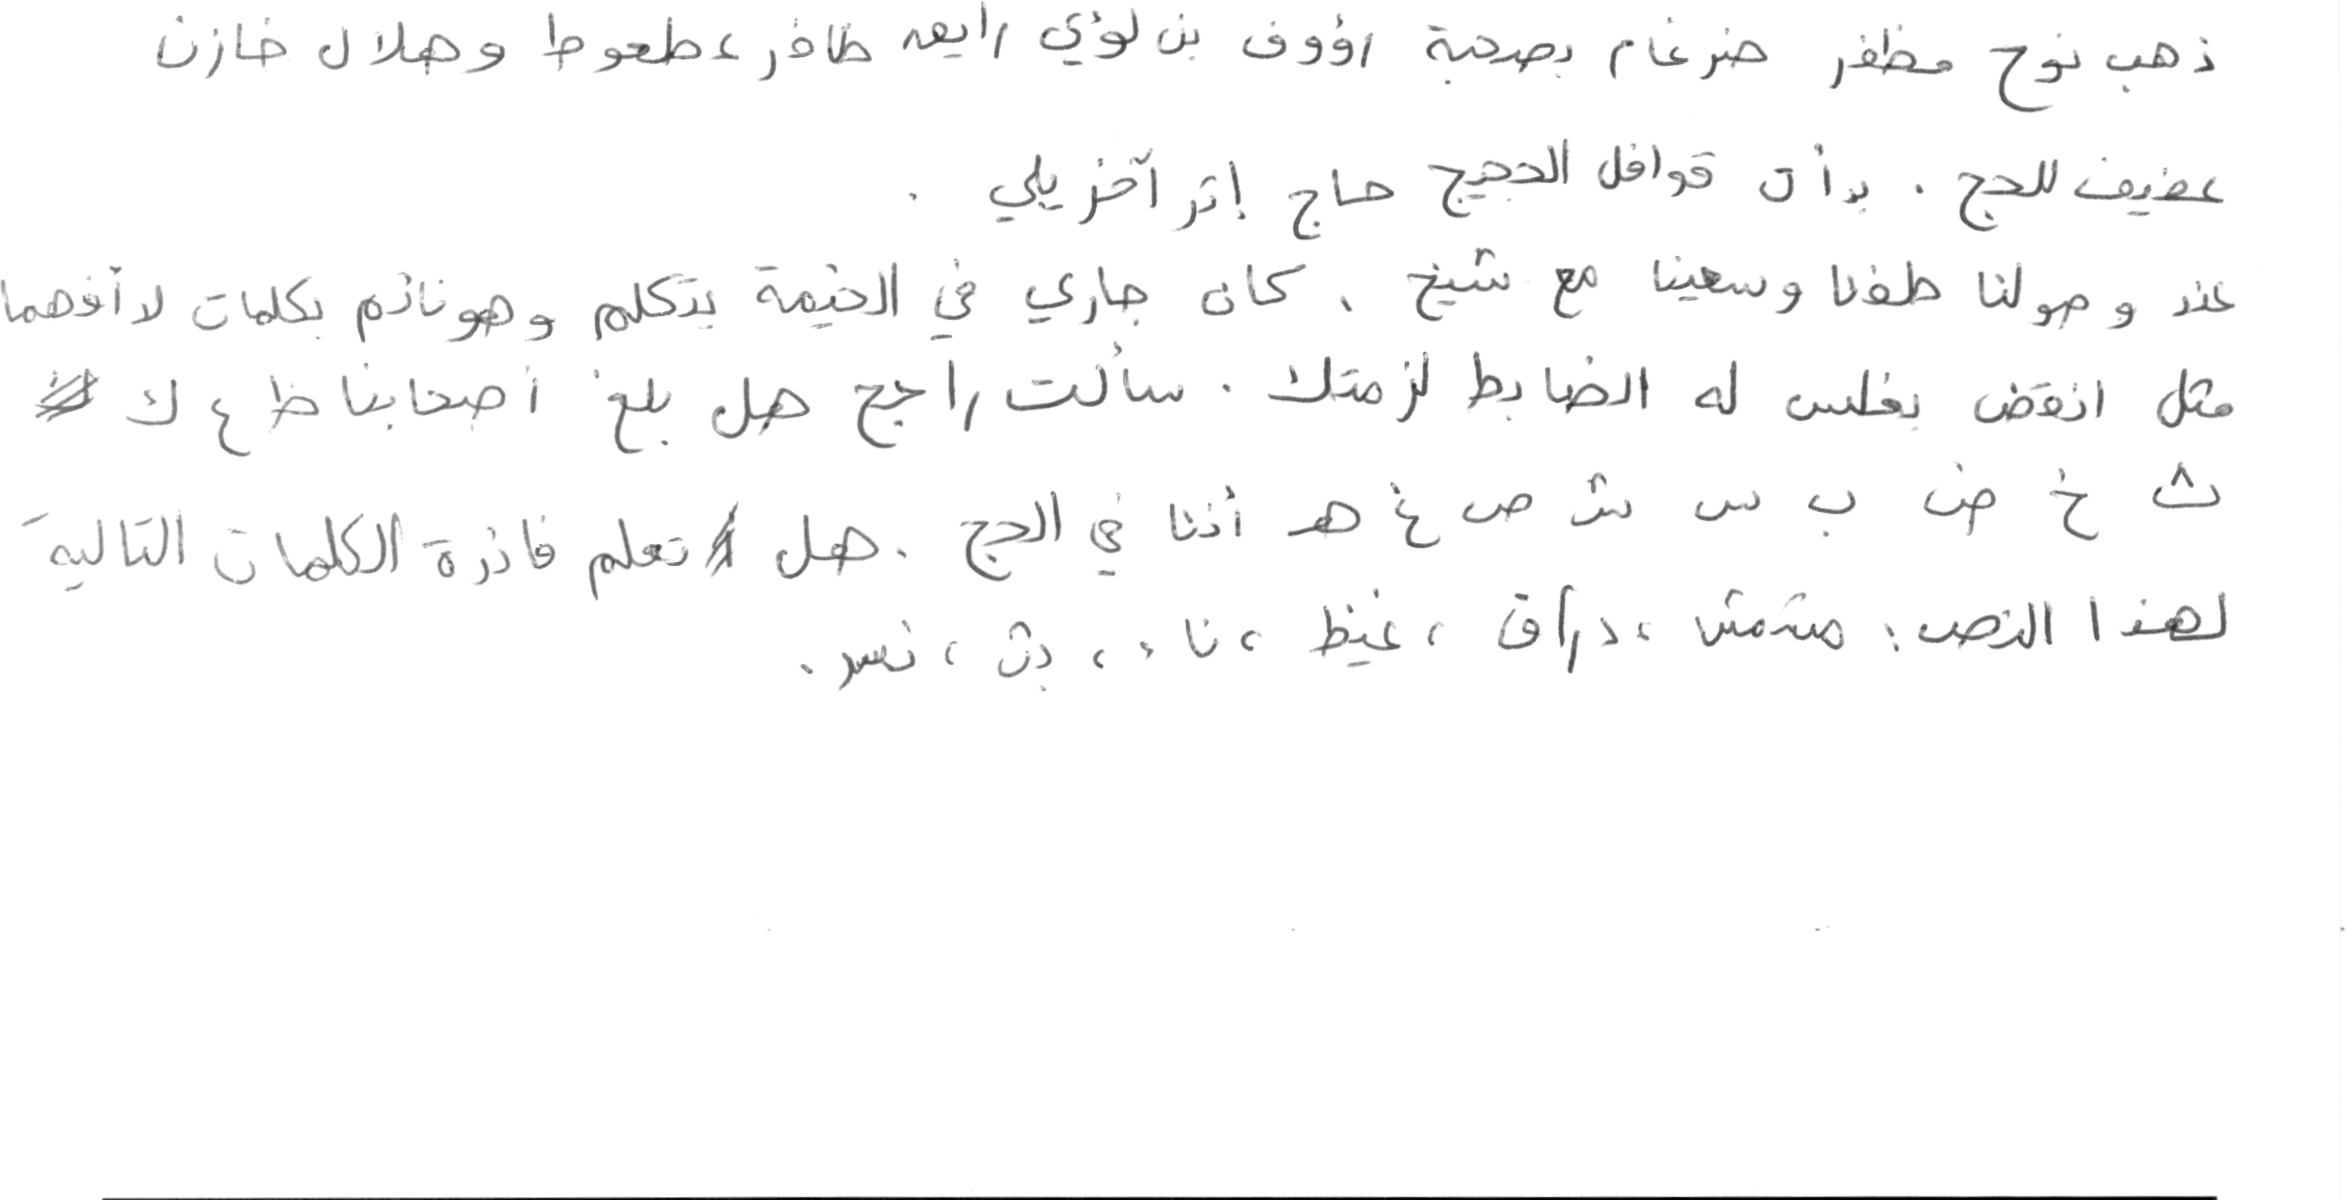 ذهب نوح مظفر ضرغام بصحبة رؤوف بن لؤي رايعه ظافر عطعوط وهلال خازن
عفيف للحج . بدأت قوافل الحجيج حاج إثر آخر يلي .
عند وصولنا طفنا وسعينا مع شيخ ، كان جاري في الخيمة يتكلم وهو نائم بكلمات لا أفهما
مثل انقض بغلس له الضابط لزمتك . سألت راجح هل بلغ أصحابنا ظ ع ك
ث خ ض ب س ش ص غ هـ أننا في الحج . هل تعلم فائدة الكلمات التالية
لهذا النص : مشمش ، دراق ، غيظ ، ناء ، بث ، نسر .